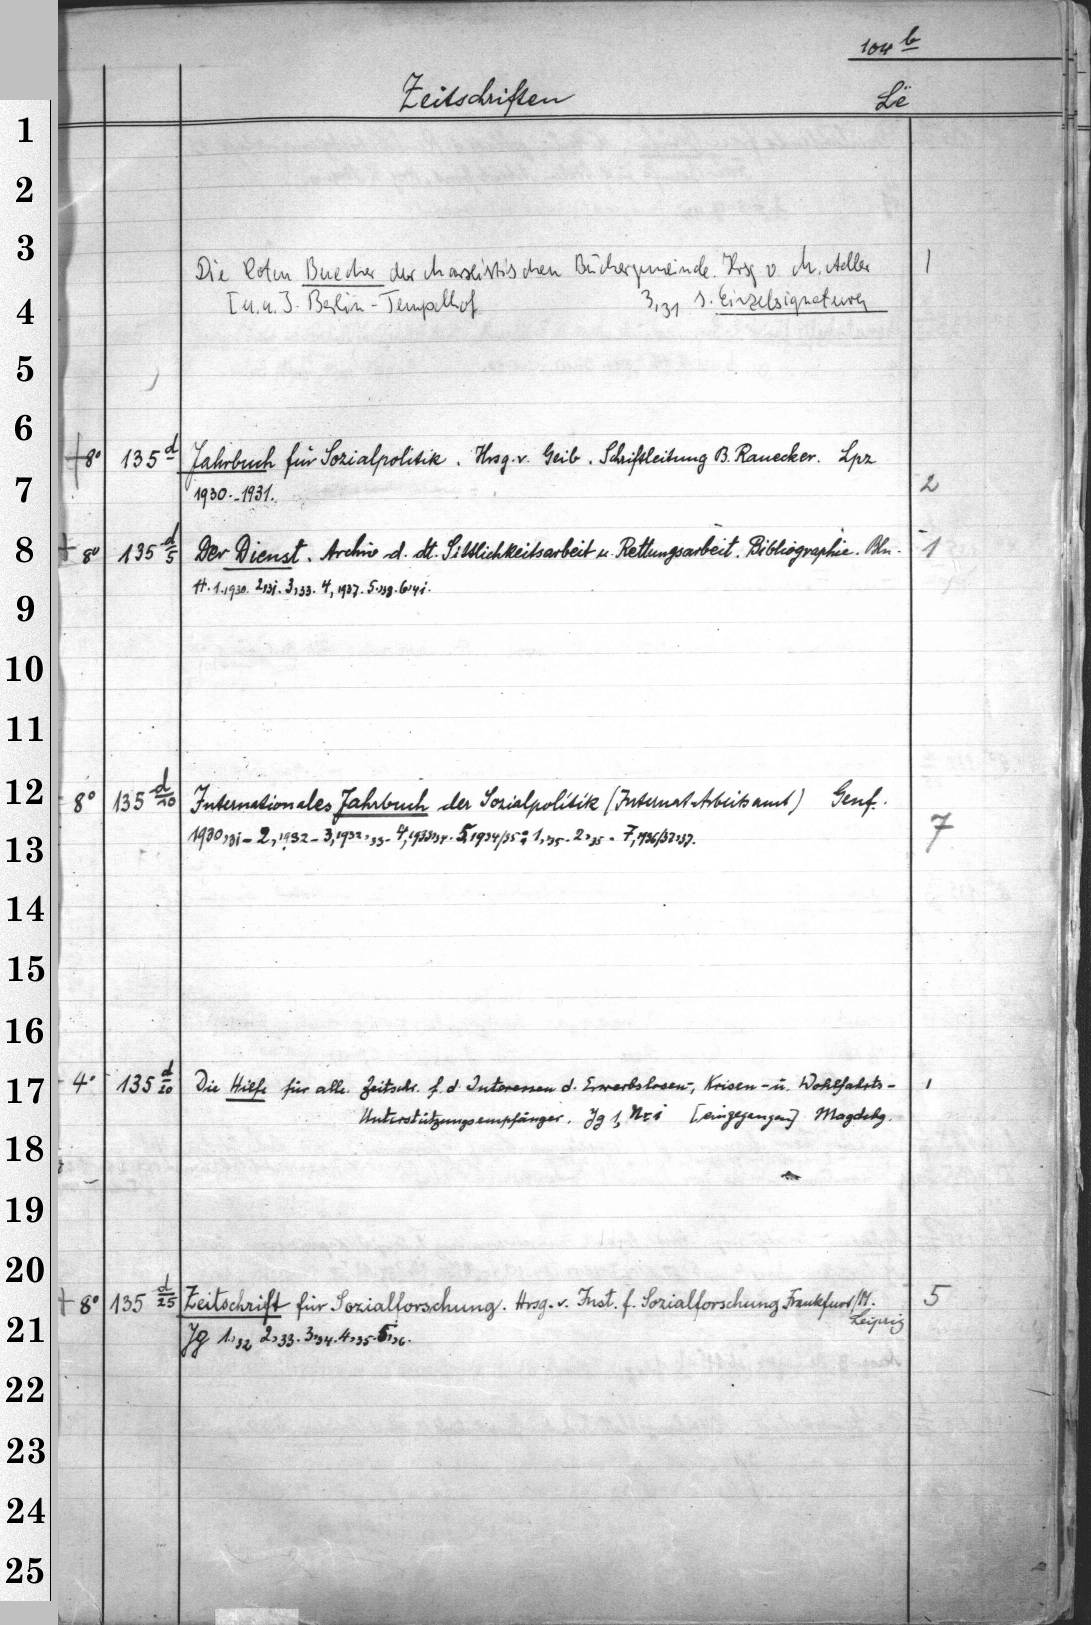 104 b
Zeitschriften Lë
1
2
3
Die Roten Buecher der Marxistischen Büchergemeinde. Hrsg v. M. Adler 1
[u.a.]. Berlin-Tempelhof 3,31 s. Einzelsignaturen
4
5
6
+ 8° 135 d Jahrbuch für Sozialpolitik. Hrsg. v. Geib. Schriftleitung B. Rauecker. Lpz
7
1930.-1931. 2
8
+ 8° 135 d/5 Der Dienst. Archiv d. dt. Sittlichkeitsarbeit u. Rettungsarbeit. Bibliographie. Bln. 1
H. 1.1930. 2,31. 3,33. 4,1937. 5,38. 6,41.
9
10
11
12
- 8° 135 d/10 Internationales Jahrbuch der Sozialpolitik (Internat. Arbeitsamt) Genf.
1930,31 - 2,1932 - 3,1932,33 - 4,1933,34 - 5,1934/35: 1,35 - 2,35 - 7,1936/37,37. 7
13
14
15
16
17
- 4° 135 d/20 Die Hilfe für alle. Zeitschr. f. d. Interessen d. Erwerbslosen-, Krisen- u. Wohlfahrts- 1
Unterstützungsempfänger. Jg 1, Nr 1 [eingegangen] Magdebg.
18
19
20
+ 8° 135 d/25 Zeitschrift für Sozialforschung. Hrsg. v. Inst. f. Sozialforschung Frankfurt/M. 5
Leipzig
21
Jg 1,32 2,33. 3,34. 4,35. 5,36.
22
23
24
25